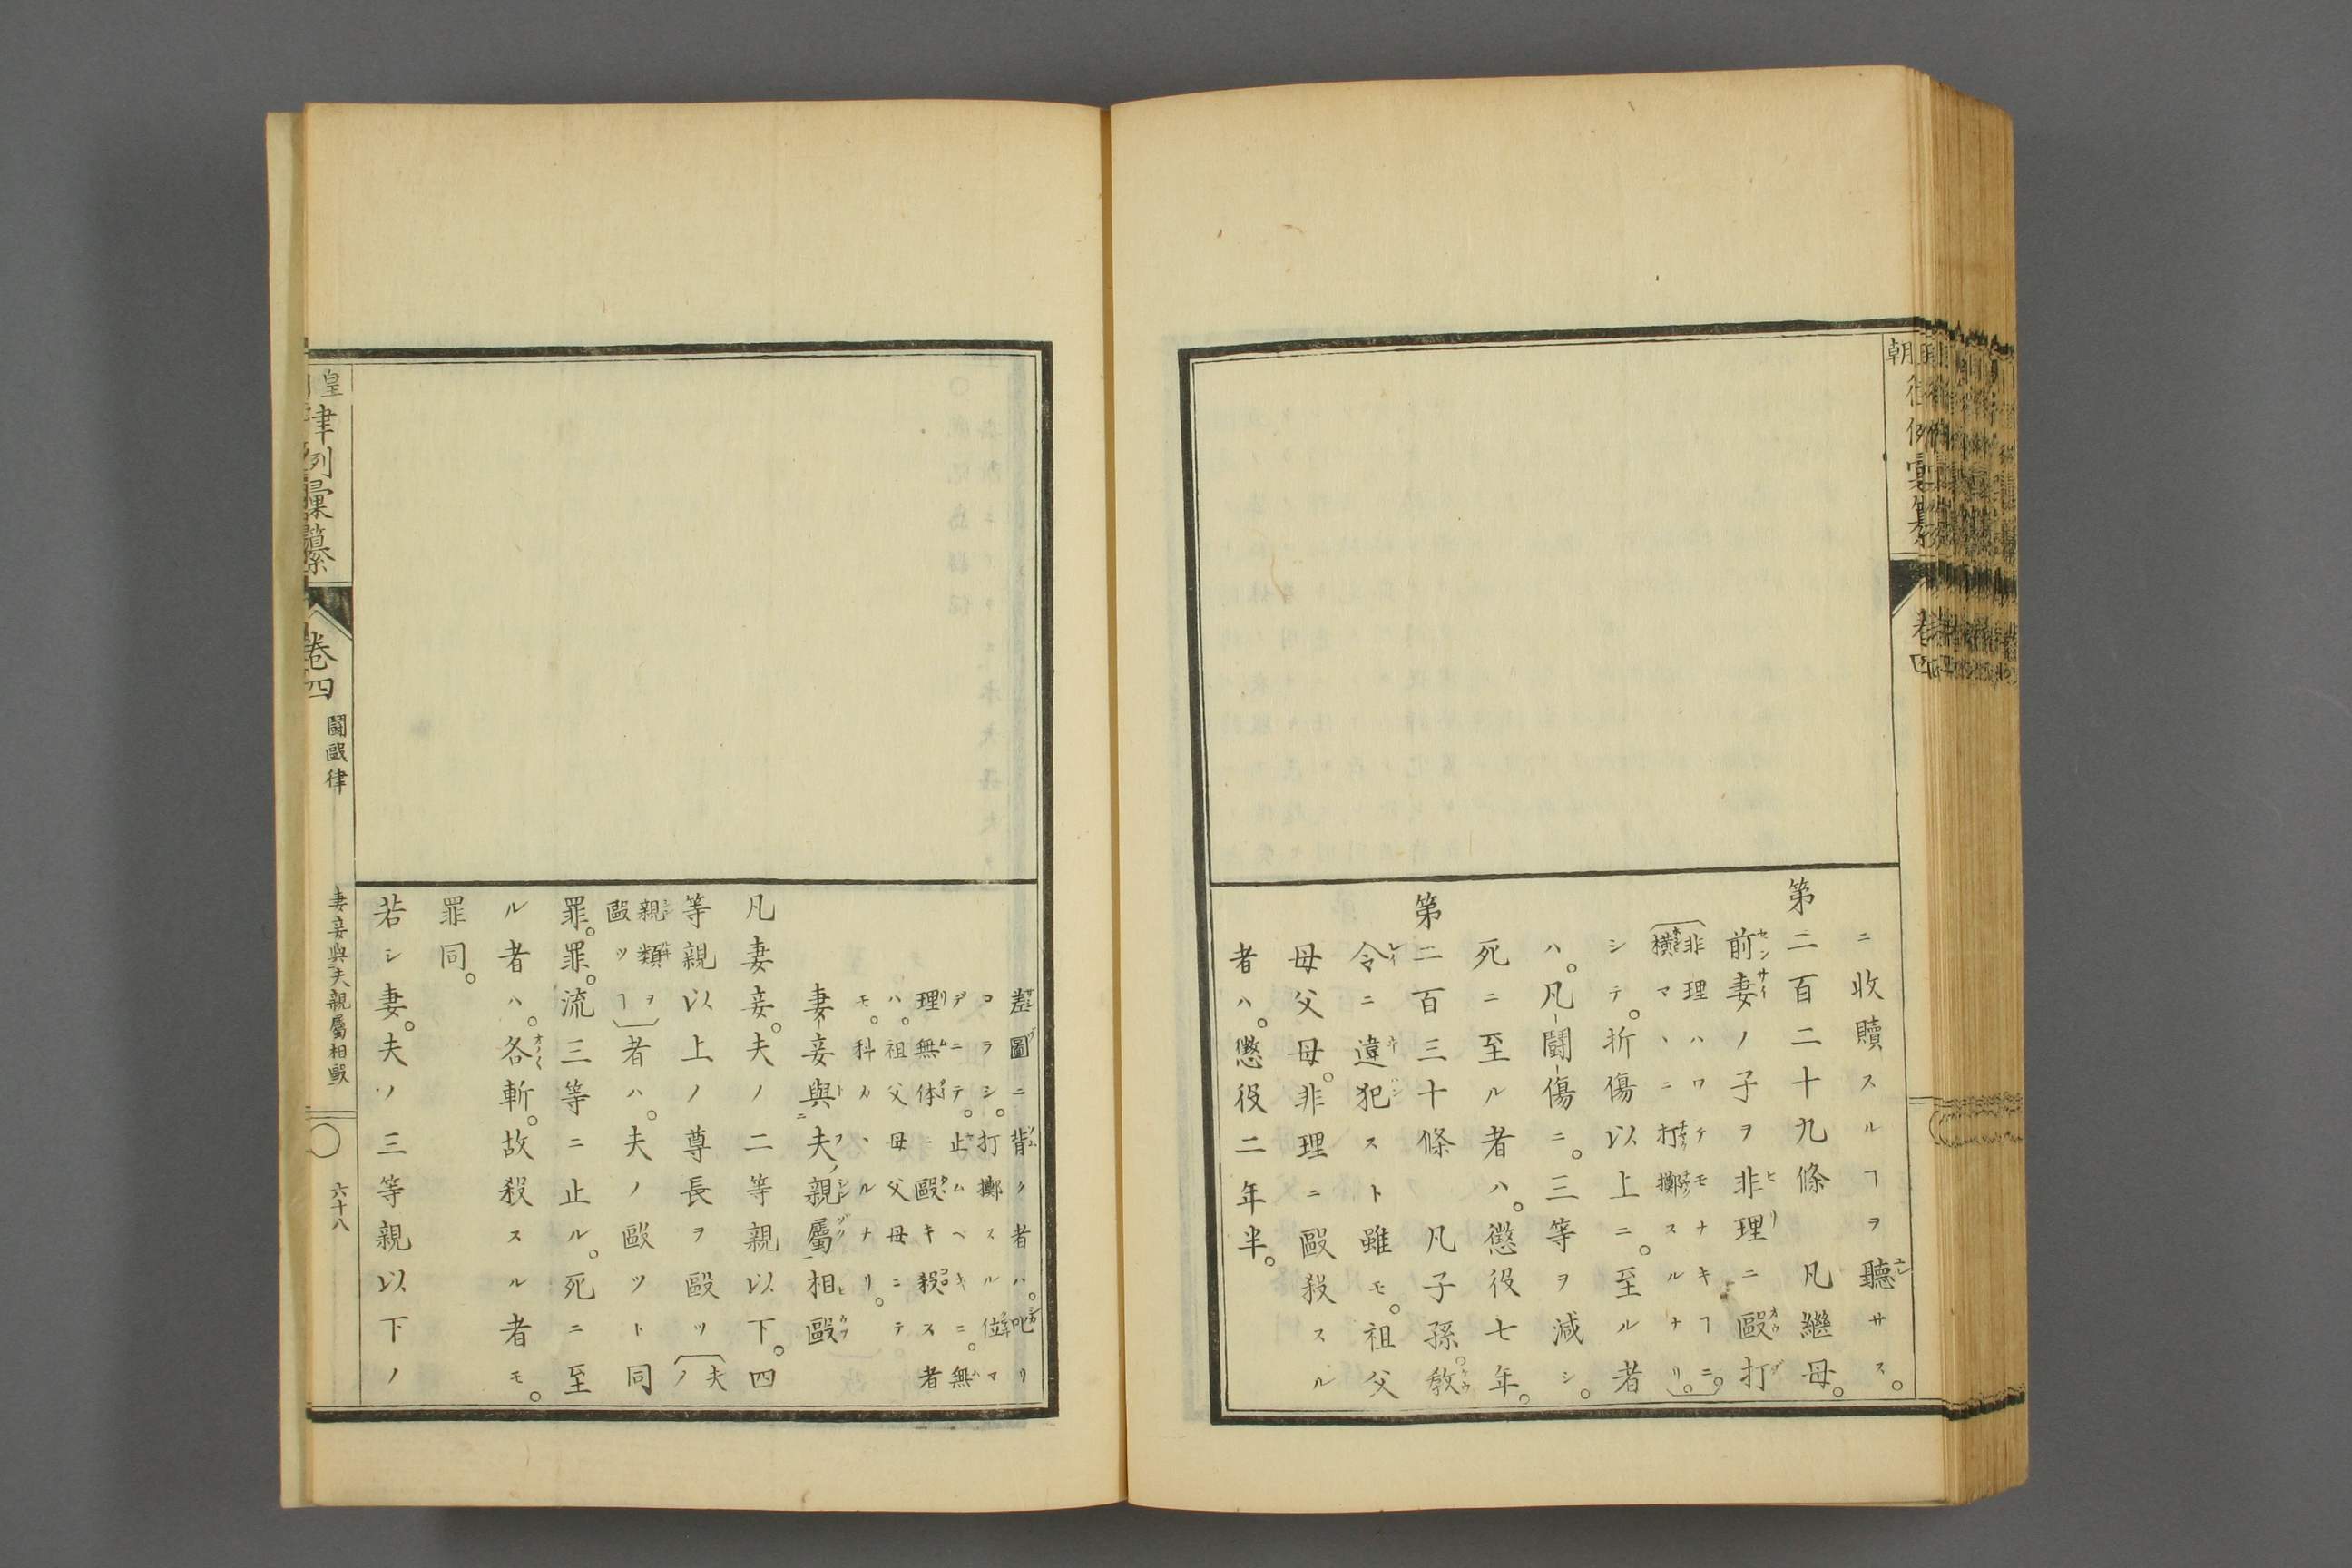 ニ收贖スルヿヲ聽サス。
第二百二十九條　凡繼母。
前妻ノ子ヲ非理ニ毆打
〔非理ハワケモナキヿニ。
橫マヽニ打擲スルナリ。〕
シテ。折傷以上ニ。至ル者
ハ。凡鬪傷ニ。三等ヲ減シ。
死ニ至ル者ハ。懲役七年。
第二百三十條　凡子孫。教
令ニ違犯スト雖モ。祖父
母父母。非理ニ毆殺スル
者ハ。懲役二年半。
朝
卷四
差圖ニ背ク者ハ。叱リ
コラシ。打擲スル位マ
デニテ。止ムベキニ。無
理無体ニ毆キ殺ス者
ハ。祖父母父母ニテ
モ。科カヽルナリ。
妻妾與夫親屬相毆
凡妻妾。夫ノ二等親以下。四
等親以上ノ尊長ヲ毆ツ〔夫ノ
親類ヲ
毆ツヿ〕者ハ。夫ノ毆ツト同
罪。罪。流三等ニ止ル。死ニ至
ル者ハ。各斬。故殺スル者モ。
罪同。
若シ妻。夫ノ三等親以下ノ
皇
律例彙纂
卷四
鬪毆律
妻妾與夫親屬相毆
六十八